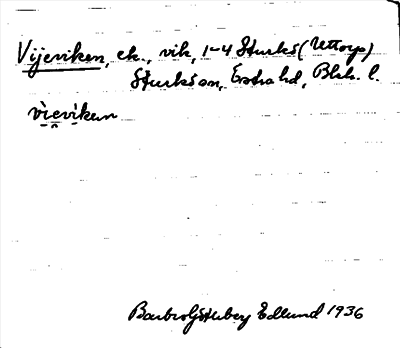 Vijeviken, ek., vik, 1-4 Sturkö (Uttorp)
Sturkö sn, Östra hd, Blek. l.
vieviken
Edlund 1936